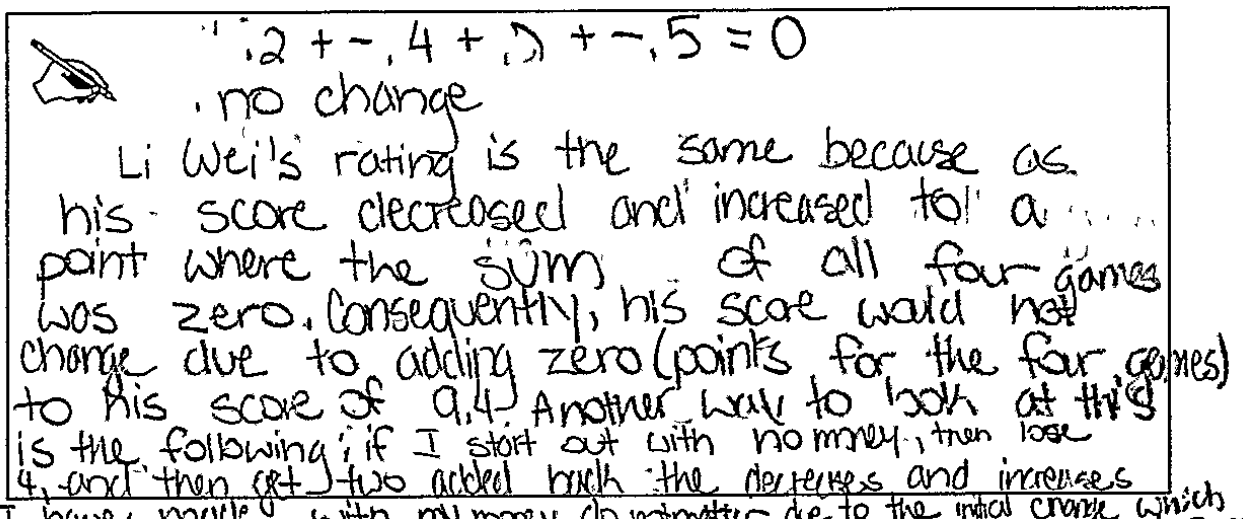 .2 + -.4 + + -.5 = 0
no change
Li Wei's rating is the same because as
his score decreased and increased to a
point where the sum of all four games
was zero. Consequently, his score would not
change due to adding zero (points for the four games)
to his score of 9.4. Another way to look at this
is the following; if I start out with no money, then lose
4, and then get two added back the decreases and increases
I have made with my money do due to the initial change which